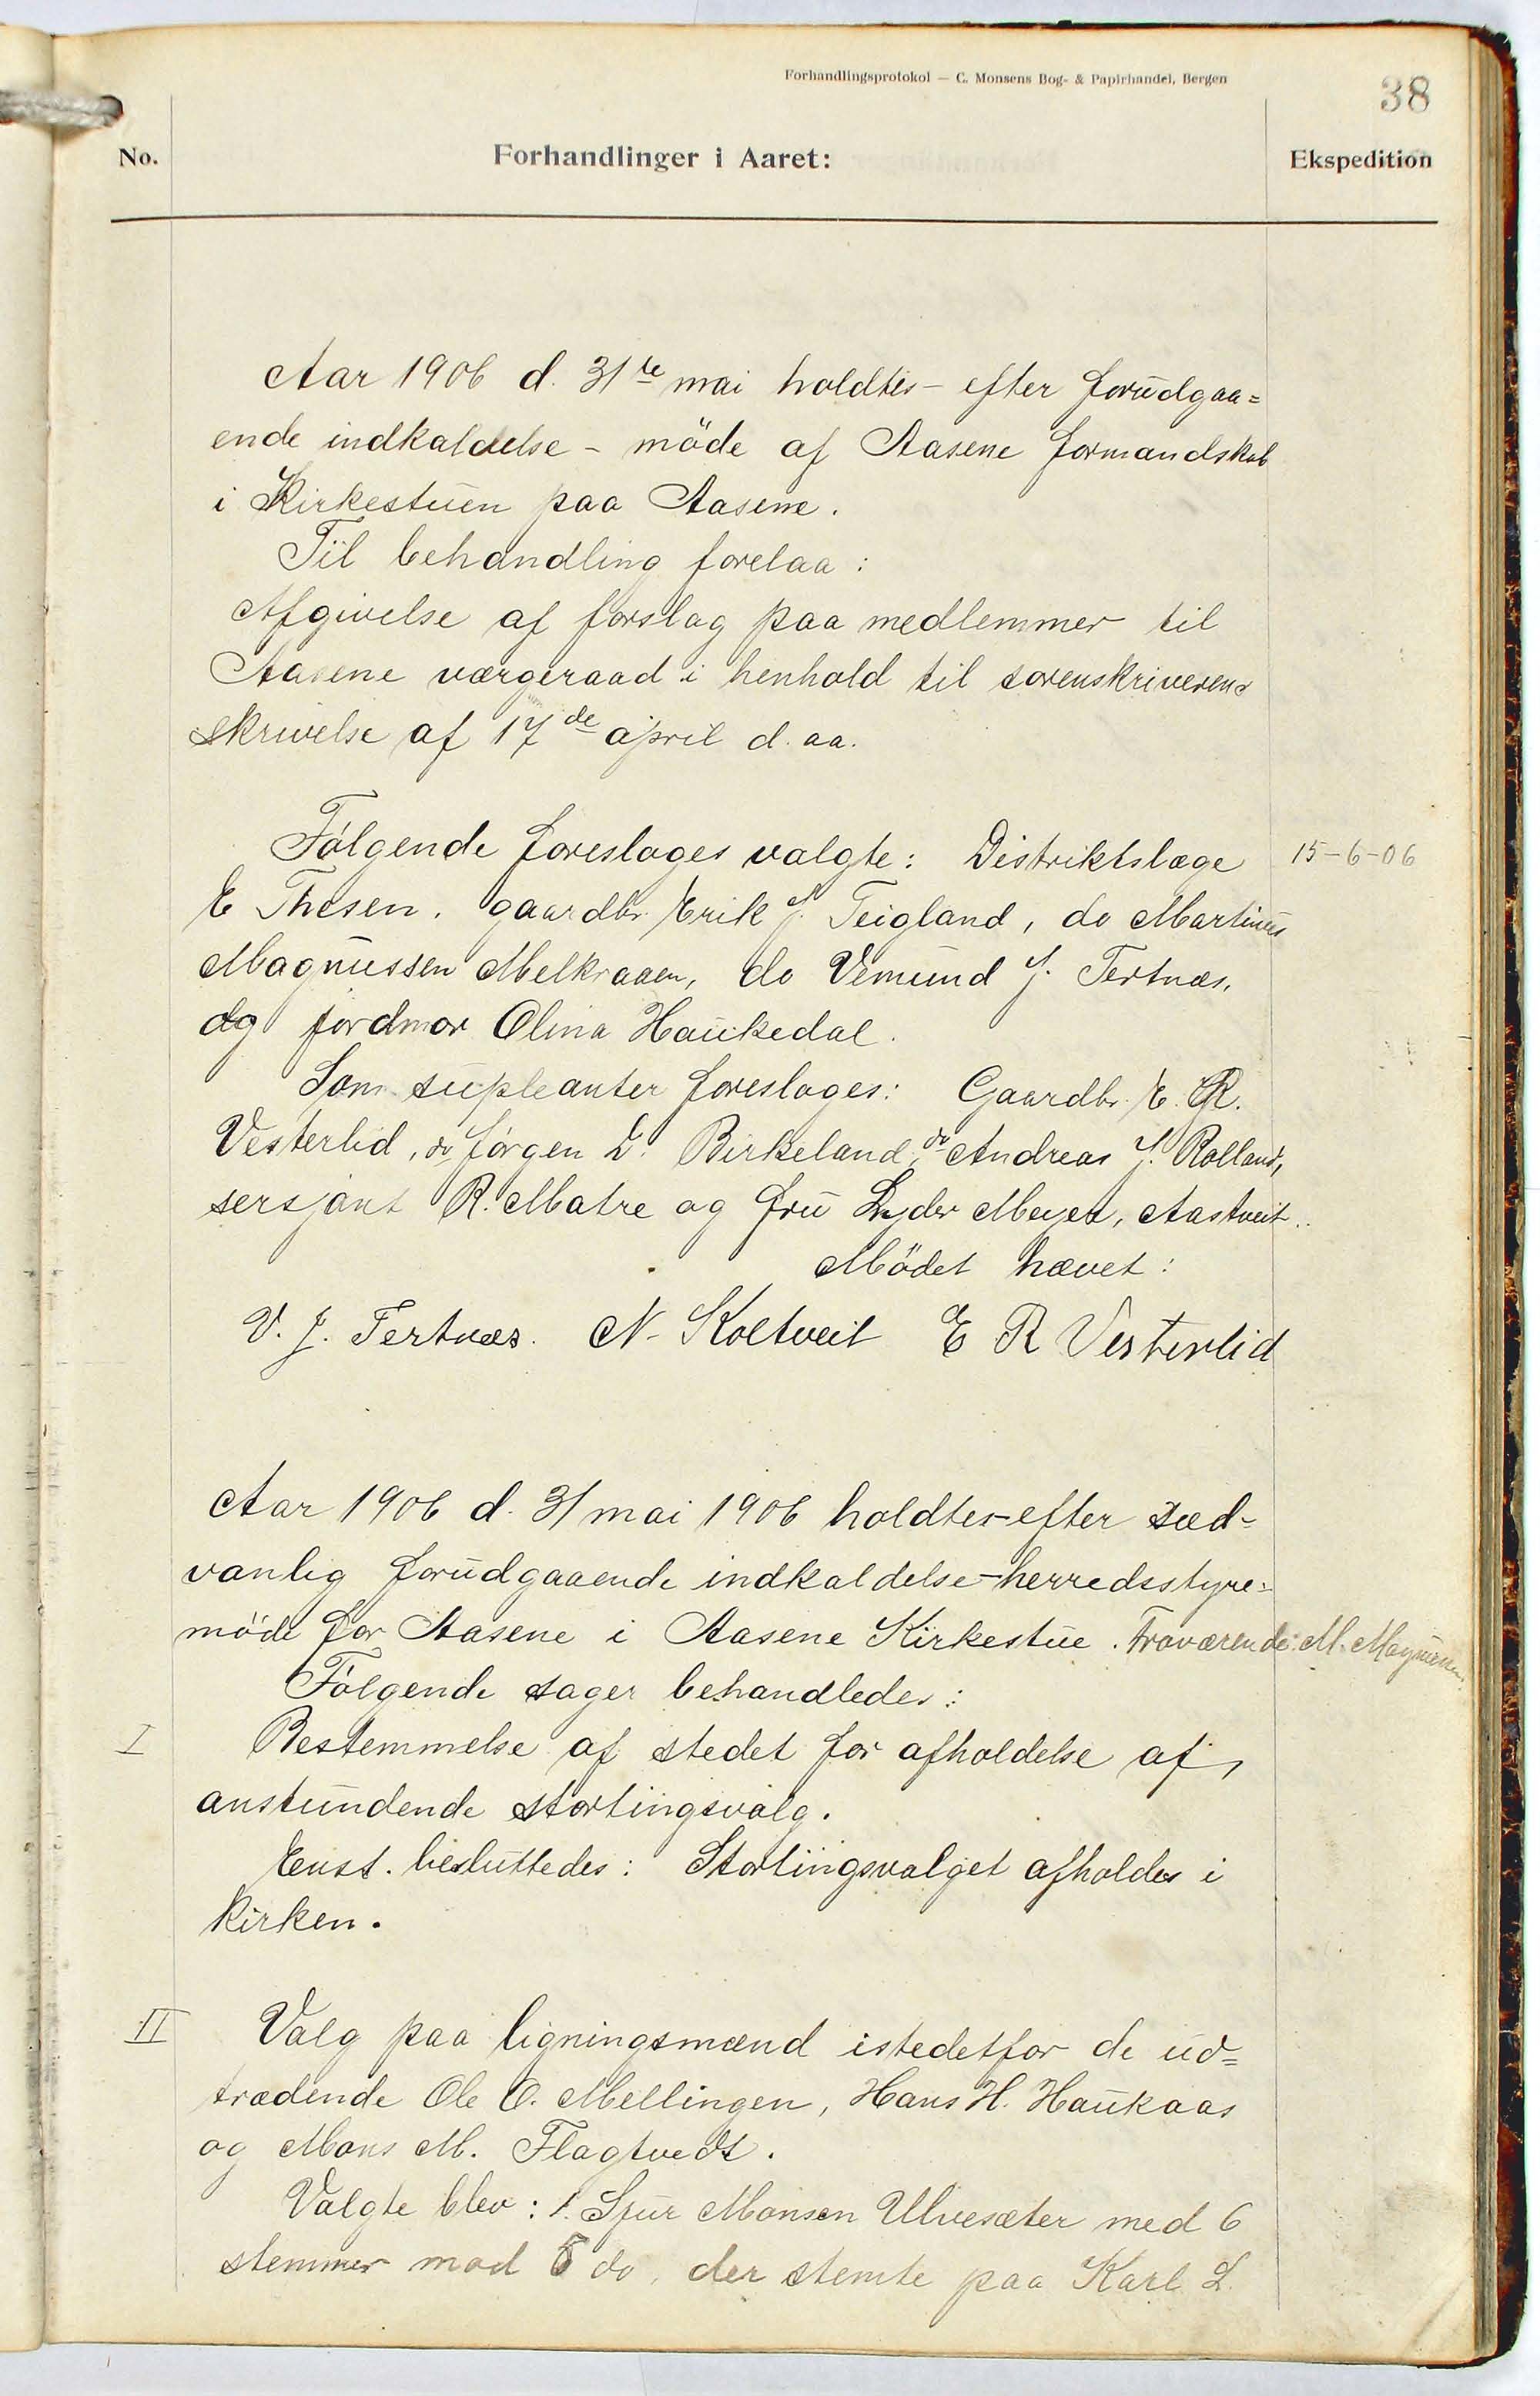 Forhandlingsprotokol — C. Monsens Bog- & Papirhandel, Bergen
38
No.
Forhandlinger i Aaret:
Ekspedition
Aar 1906 d. 31te mai holdtes - efter forudgaa=
ende indkaldelse - möde af Aasene formandskab
i Kirkestuen paa Aasene.
Til behandling forelaa:
Afgivelse af forslag paa medlemmer til
Aasene værgeraad i henhold til sorenskriverens
skrivelse af 17de april d. aa.
Følgende foreslages valgte: Distriktslæge
15-6-06
E Thesen. gaardbr. Erik J. Teigland, do Martinus
Magnussen Melkraaen, do Vemund J. Tertnæs,
og jordmor Olina Haukedal.
Som supleanter foreslages: Gaardbr. E. R.
Vesterlid, do Jørgen D. Birkeland, do Andreas J. Rolland,
sersjant R. Matre og fru Lyder Meyer, Aastveit.
Mödet hævet:
V. J. Tertnæs. N. Koltveit E R Vesterlid
Aar 1906 d. 31 mai 1906 holdtes - efter sæd=
vanlig forudgaaende indkaldelse - herredsstyre=
möde for Aasene i Aasene Kirkestue. Fraværende: M. Magnussen
Følgende sager behandledes:
I
Bestemmelse af stedet for afholdelse af
anstundende stortingsvalg.
Enst. besluttedes: Stortingsvalget afholdes i
kirken.
II
Valg paa ligningsmænd istedetfor de ud=
trædende Ole O. Mellingen, Hans H. Haukaas
og Mons M. Flagtvedt.
Valgte blev: 1. Sjur Monsen Ulvesæter med 6
stemmer mod 5 do, der stemte paa Karl L.